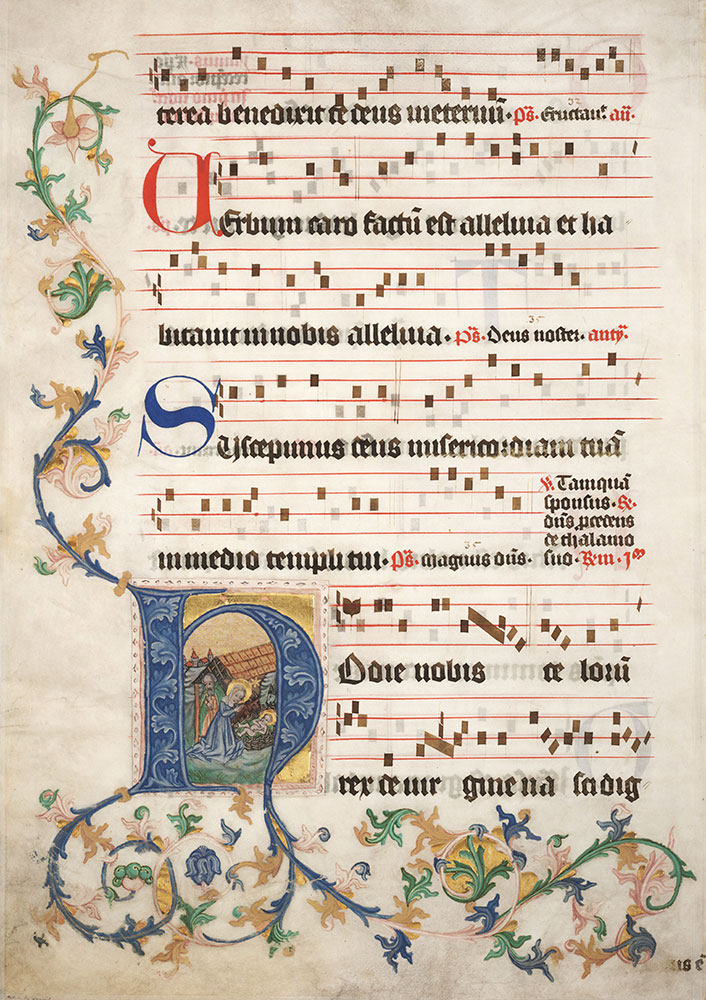 terea benedixit te deus ineternū. p̄s. Eructaut. añ.
32
VErbum caro factū est alleluia et ha
bitauit in nobis alleluia. p̄s. Deus noster. anty.
35
SUscepimus deus misericordiam tuā
in medio templi tui. p̄s. Magnus dūs.
35
V. Tamquā
sponsus. R.
dūs pcedens
de thalamo
suo.
HOdie nobis ce lorū
rex de vir gine na sci dig